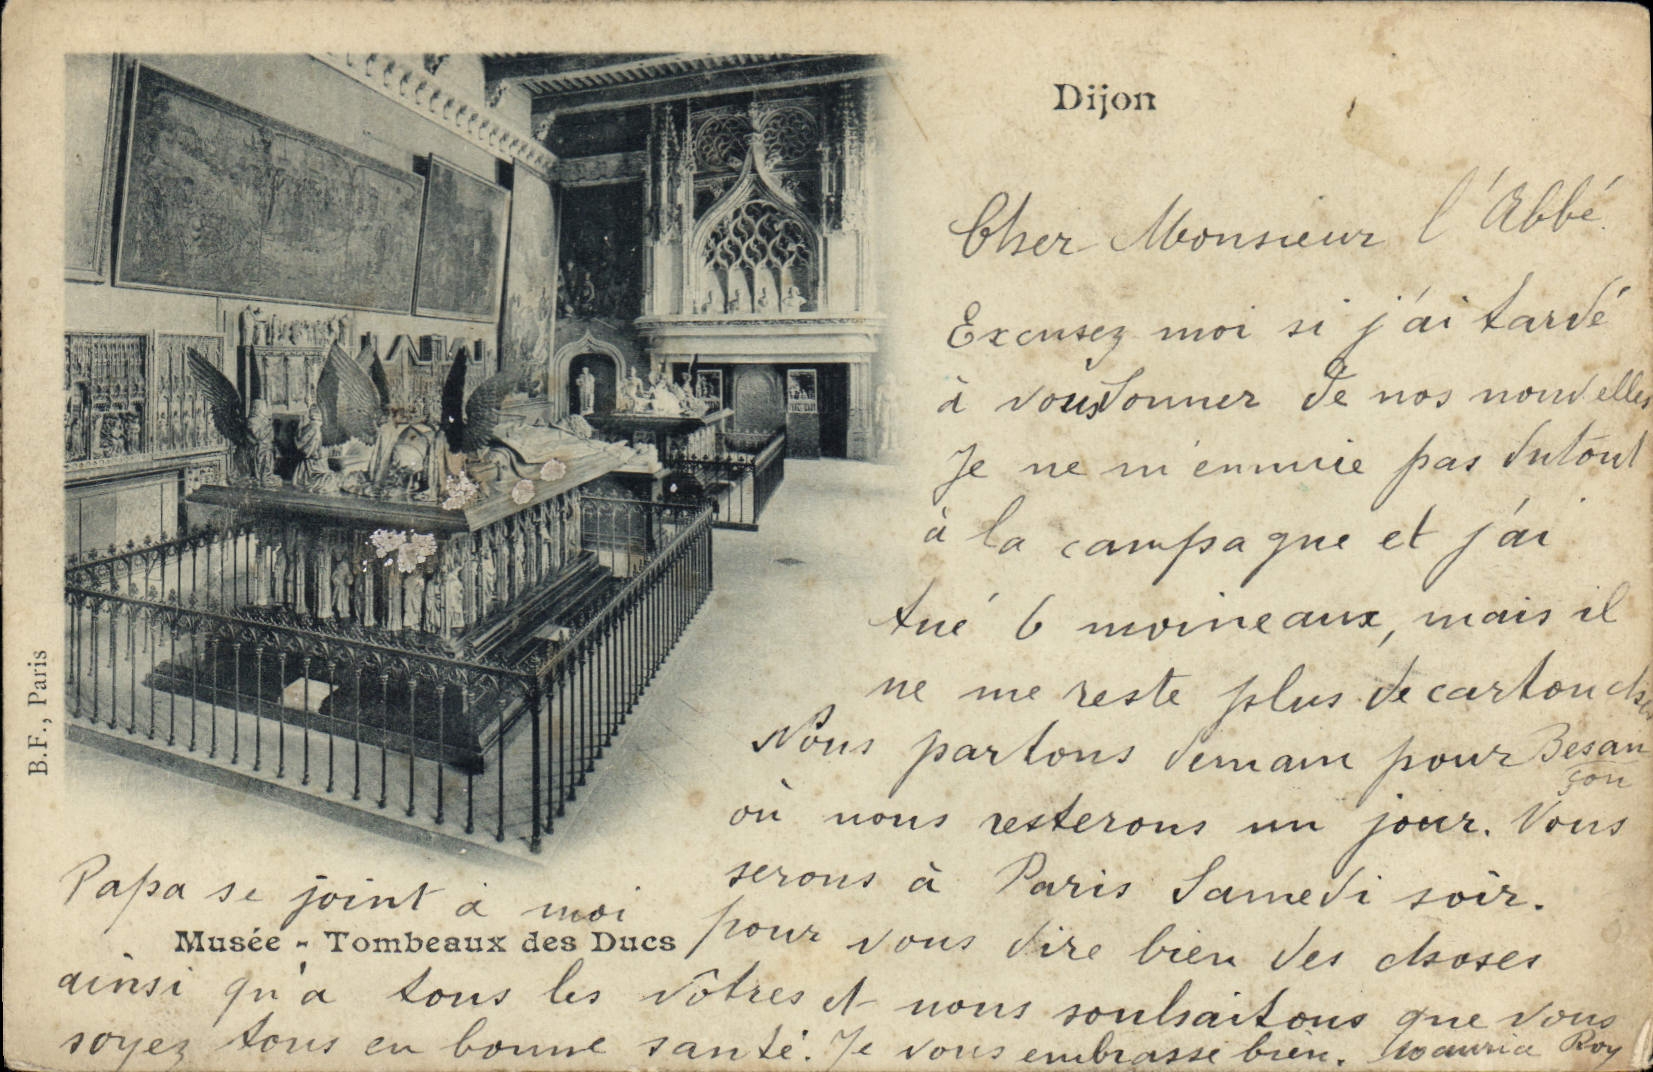 Dijon
Cher Monsieur l'Abbé.
Excusez moi si j'ai tardé
à vous donner de nos nouvelles
Je ne m'ennuie pas dutout
à la campagne et j'ai
tué 6 moineaux, mais il
ne me reste plus de cartouches
Nous partons demain pour Besan
çon
où nous resterons un jour. Nous
serons à Paris Samedi soir.
Papa se joint à moi
pour vous dire bien des choses
ainsi qu'à tous les vôtres et nous souhaitons que vous
soyez tous en bonne santé. Je vous embrasse bien. Roy
Musée - Tombeaux des Ducs
B.F., Paris